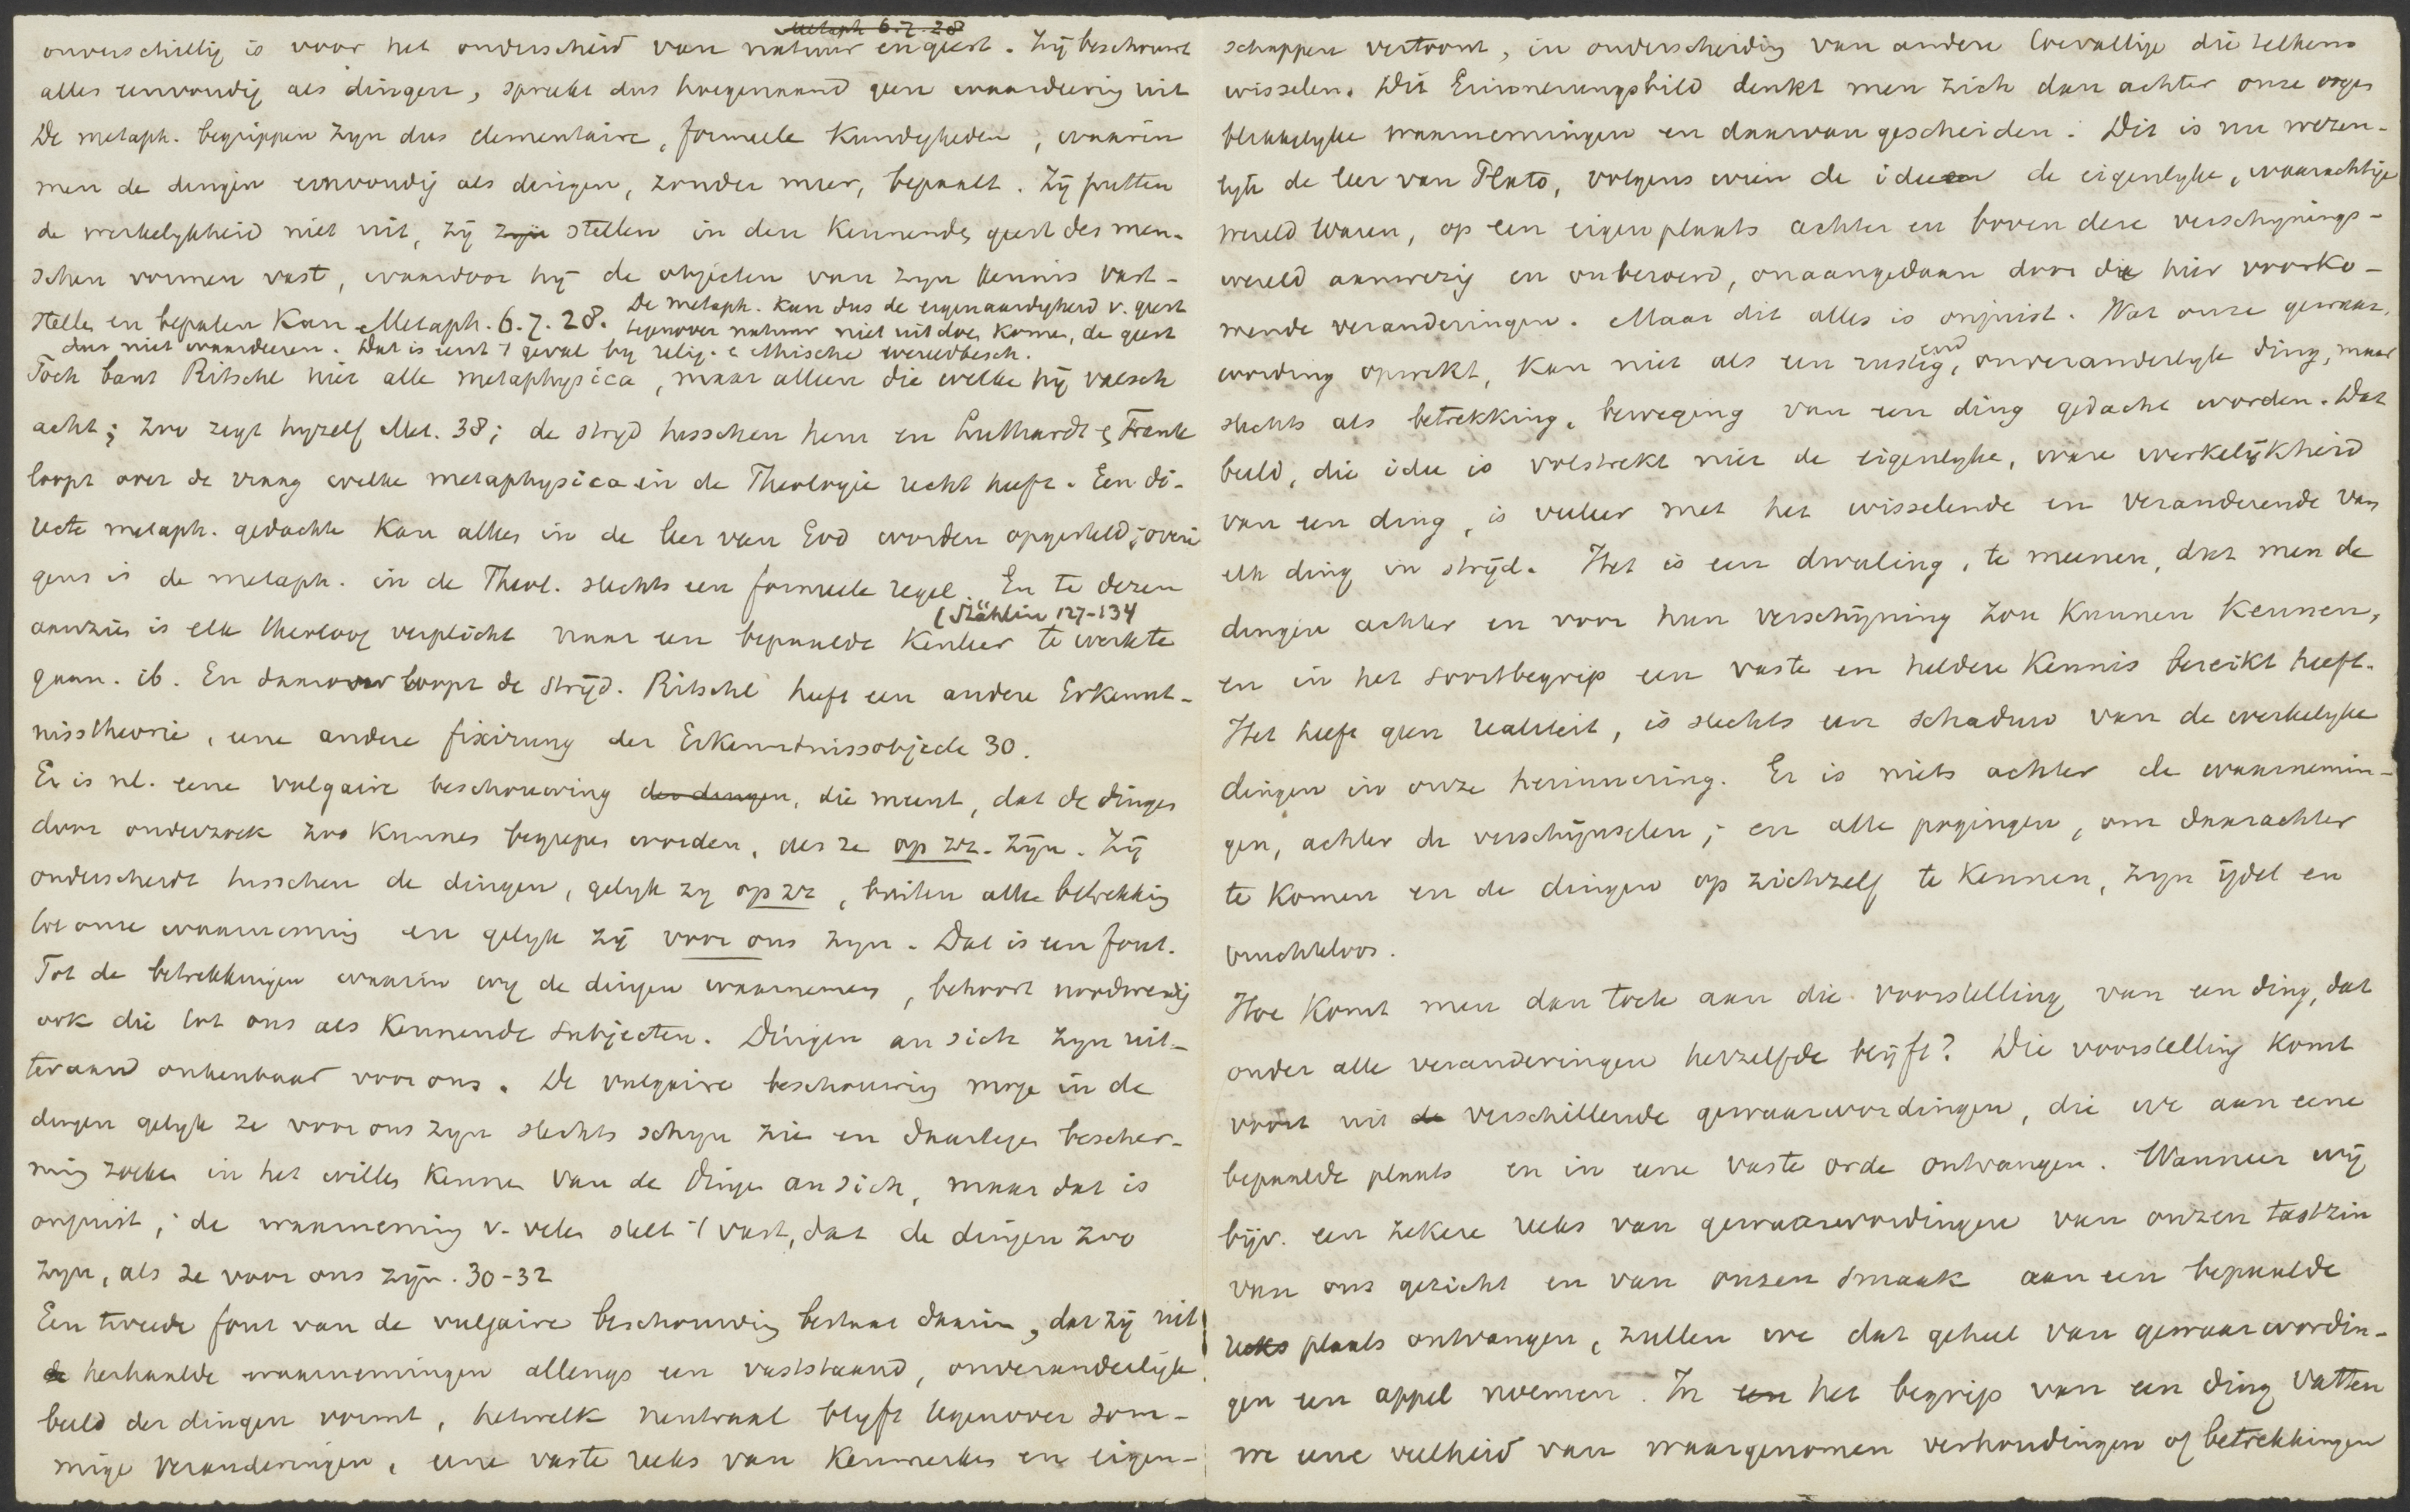 Metaph 6. 7. 28
onverschillig is voor het onderscheid van natuur en geest. Zij beschouwt
alles eenvoudig als dingen, spreekt dus hoegenaamd geen waardeering uit
De metaph. begrippen zyn dus elementaire, formeele kundigheden, waarin
men de dingen eenvoudig als dingen, zonder meer, bepaalt. Zij putten
de werkelykheid niet uit, zij zyn stellen in den kennenden geest des men-
schen vormen vast, waardoor hij de objecten van zyn kennis vast-
stellen en bepalen kan Metaph. 6. 7. 28. De metaph. kan dus de eigenaardigheid v. geest
tegenover natuur niet uit doen komen, de geest
dus niet waardeeren. Dat is eerst 't geval by relig. e ethische wereldbesch.
Toch bant Ritschl niet alle metaphysica, maar alleen die welke hij valsch
acht; zoo zegt hyzelf Met. 38; de stryd tusschen hem en Luthardt e Frank
loopt over de vraag welke metaphysica in de Theologie recht heeft. Een di-
recte metaph. gedachte kan alleen in de leer van God worden opgesteld; overi
gens is de metaph. in de Theol. slechts een formeele regel. En te dezen
(Stählin 127-134
aanzien is elk theoloog verplicht naar een bepaalde kenleer te werk te
gaan. ib. En daarover loopt de strijd. Ritschl heeft een andere Erkennt-
nisstheorie, eene andere fixirung der Erkenntnissobjecte 30.
Er is nl. eene vulgaire beschouwing der dingen, die meent, dat de dingen
door onderzoek zoo kunnen begrepen worden, als ze op zz. zijn. Zij
onderscheidt tusschen de dingen, gelyk zy op zz, buiten alle betrekking
tot onze waarneming en gelyk zij voor ons zyn. Dat is een fout.
Tot de betrekkingen waarin wy de dingen waarnemen, behoort noodwendig
ook die tot ons als kennende subjecten. Dingen an sich zyn uit-
teraard onkenbaar voor ons. De vulgaire beschouwing moge in de
dingen gelyk ze voor ons zyn slechts schyn zien en daartegen bescher-
ming zoeken in het willen kennen van de Dingen an sich, maar dat is
onjuist; de waarneming v. velen stelt 't vast, dat de dingen zoo
zyn, als ze voor ons zijn. 30-32
Een tweede fout van de vulgaire beschouwing bestaat daarin, dat zij uit
de herhaalde waarnemingen allengs een vaststaand, onveranderlijk
beeld der dingen vormt, hetwelk neutraal blyft tegenover som-
mige veranderingen, eene vaste reeks van kenmerken en eigen-
schappen vertoont, in onderscheiding van andere toevallige die telkens
wisselen. Dit Erinnerungsbild denkt men zich dan achter onze oogen
blikkelyke waarnemingen en daarvan gescheiden. Dit is nu wezen-
lyk de leer van Plato, volgens wien de ideeen de eigenlyke, waarachtige
wereld waren, op een eigen plaats achter en boven deze verschynings-
wereld aanwezig en onberoerd, onaangedaan door die hier voorko-
mende veranderingen. Maar dit alles is onjuist. Wat onze gewaar-
wording opwekt, kan niet als een rustigend, onveranderlyk ding, maar
slechts als betrekking, beweging van een ding gedacht worden. Dat
beeld, die idee is volstrekt niet de eigenlyke, ware werkelijkheid
van een ding, is veeleer met het wisselende en veranderende van
elk ding in strijd. Het is een dwaling, te meenen, dat men de
dingen achter en voor hun verschijning zou kunnen kennen,
en in het soortbegrip een vaste en heldere kennis bereikt heeft.
Het heeft geen realiteit, is slechts een schaduw van de werkelyke
dingen in onze herinnering. Er is niets achter de waarnemin-
gen, achter de verschijnselen; en alle pogingen, om daarachter
te komen en de dingen op zichzelf te kennen, zyn ijdel en
vruchteloos.
Hoe komt men dan toch aan die voorstelling van een ding, dat
onder alle veranderingen hetzelfde blijft? Die voorstelling komt
voort uit de verschillende gewaarwordingen, die we aan eene
bepaalde plaats en in eene vaste orde ontvangen. Wanneer wij
bijv. een zekere reeks van gewaarwordingen van onzen tastzin
van ons gezicht en van onzen smaak aan een bepaalde
reeks plaats ontvangen, zullen we dat geheel van gewaarwordin-
gen een appel noemen. In een het begrip van een ding vatten
we eene veelheid van waargenomen verhoudingen of betrekkingen